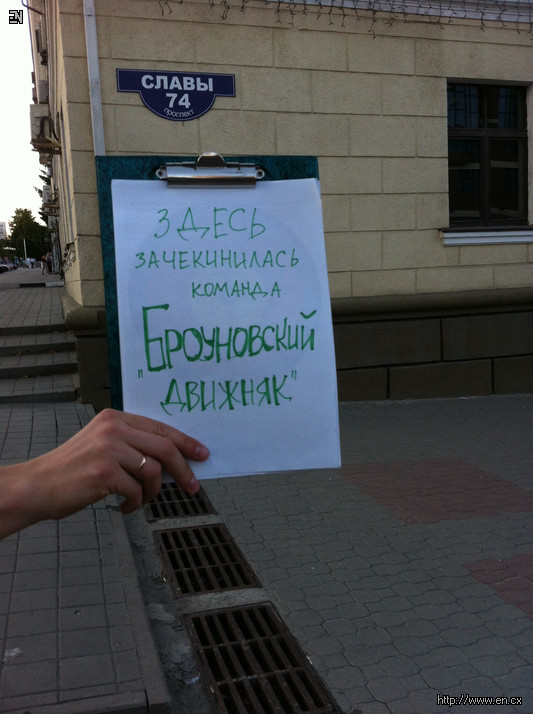 EN
СЛАВЫ
74
проспект
ЗДЕСЬ
ЗАЧЕКИНИЛАСЬ
КОМАНДА
"БРОУНОВСКИЙ
ДВИЖНЯК"
http://www.en.cx